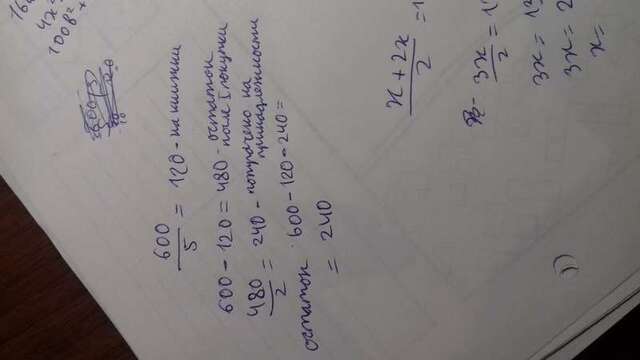 600/5 = 120 - на книжки
600 - 120 = 480 - остаток
после I покупки
480/2 = 240 - потрачено на
принадлежности
остаток 600 - 120 - 240 =
= 240
x + 2x/2 = 1
3x/2 = 1
3x = 13
3x = 2
x =